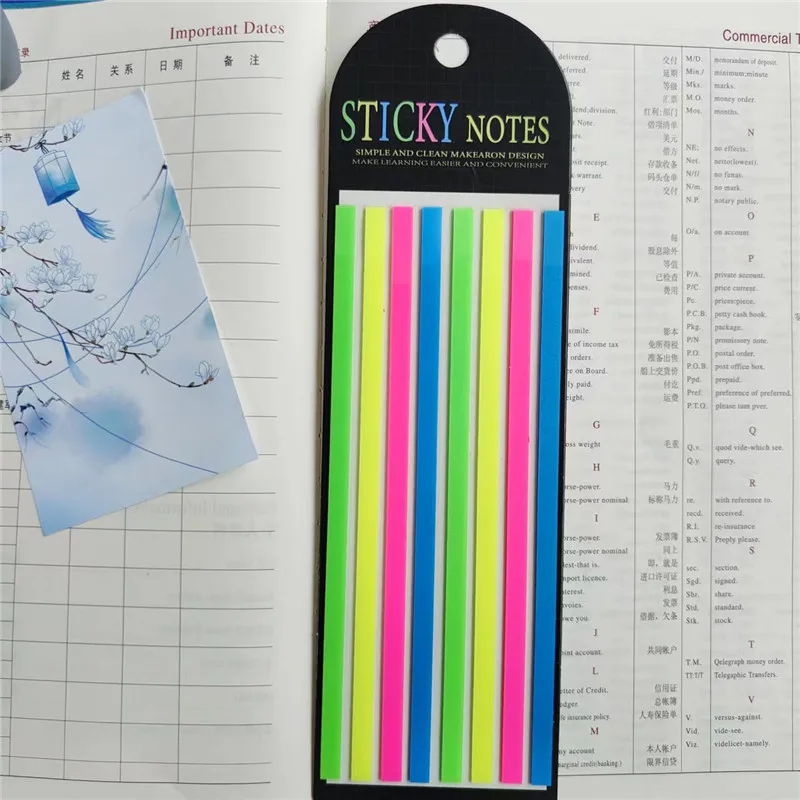 Important Dates
录
姓名 关系 日期 备注
STICKY NOTES
SIMPLE AND CLEAN MAKEARON DESIGN
MAKE LEARNING EASIER AND CONVENIENT
Commercial T
delivered. 交付
延期
等级
汇票
dend;division. 红利;部门
Note. 借项清单
美元
借方
sit receipt. 存款收备
warrant. 码头仓单
very 交付
E
每
dividend. 股息除外
等值
mined. 已检查
费用
F
影本
e of income tax 免所得税
orders. 准备出售
e on Board. 船上交货价
ly paid. 付讫
eight. 运费
G
oss weight 毛重
H
rse-power. 马力
rse-power nominal 标称马力
I
rse-power. 发票簿
rse-power nominal 同上
est-that is. 即,就是
mport licence. 进口许可证
nterest. 利总
nvoies. 发票
owe you. 借据,欠条
J
oint account. 共同帐户
L
etter of Credit. 信用证
edger. 总帐簿
ife insurance policy. 人寿保险单
M
my account 本人帐户
marginal credit(banking.) 限界信贷
M/D. memorandum of deposit.
Min./ minimum;minute
Mks. marks.
M.O. money order.
Mos. months.
N
NE: no effects.
Net. netto(lowest).
N/f/ no funas.
N/m. no mark.
N.P. notary public.
O
O/a. on account
P
P/A. private account.
P/C. price current.
Pc. prices:piece.
P.C.B. petty cash book.
Pkg. package.
P/N promissory note.
P.O. postal order.
P.O.B. post office box.
Ppd. prepaid.
Pref. preference of preferred.
P.T.O. please turn over.
Q
Q.v. quod vide-which see.
Q.y. query.
R
re. with reference to.
recd. received.
R.I. re-insurance
R.S.V. Preply please.
S
sec. section.
Sgd. signed.
Shr. share.
Std. standard.
Stk. stock.
T
T.M. Qelegraph money order.
TT:T/T Telegaphic Transfers.
V
V. versus-against.
Vid. vide-see.
Viz. videlicet-namely.